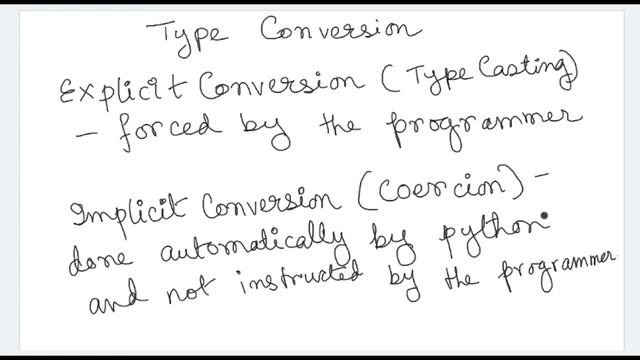 Type Conversion
Explicit Conversion (Type Casting)
- forced by the programmer
Implicit Conversion (Coercion) -
done automatically by python
and not instructed by the programmer